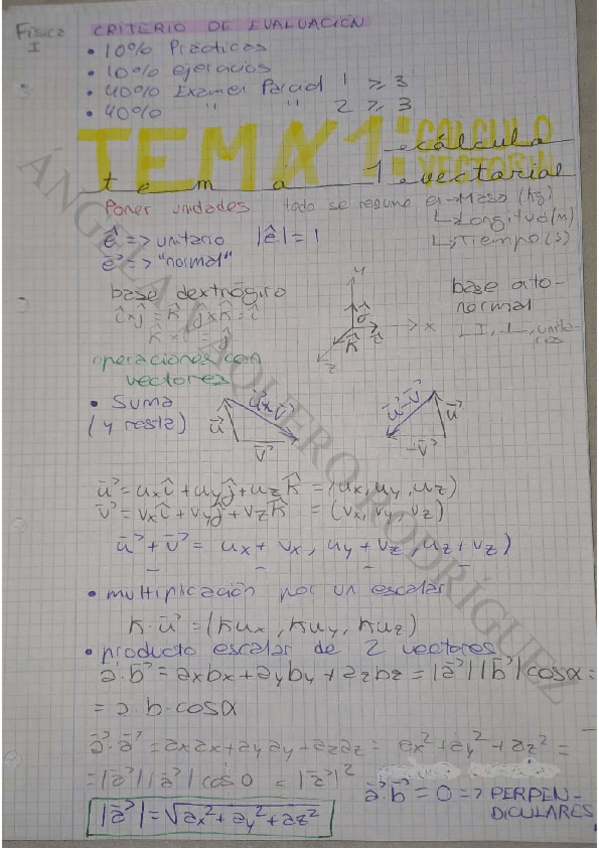 Física I
CRITERIO DE EVALUACIÓN
• 10% Prácticas
• 10% ejercicios
• 40% Examen Parcial 1 ≥ 3
• 40% " " 2 ≥ 3
TEMA 1: CÁLCULO VECTORIAL
tema 1 cálculo vectorial
Poner unidades todo se resume en → Masa (kg)
↳ Longitud (m)
↳ Tiempo (s)
ê => unitario |ê| = 1
e⃗ => "normal"
base dextrógiro
î x ĵ = k̂ ĵ x k̂ = î
k̂ x î = ĵ
y
x
z
k̂
base orto-
normal
operaciones con
vectores
• Suma
(y resta)
u⃗
v⃗
u⃗-v⃗
u⃗
-v⃗
u⃗ = uxî + uyĵ + uzk̂ = (ux, uy, uz)
v⃗ = vxî + vyĵ + vzk̂ = (vx, vy, vz)
u⃗ + v⃗ = ux + vx, uy + vz, uz + vz)
• multiplicación por un escalar
k · u⃗ = (kux, kuy, kuz)
• producto escalar de 2 vectores
a⃗·b⃗ = axbx + ayby + azbz = |a⃗||b⃗| cosα =
= a·b·cosα
a⃗·a⃗ = axax + ayay + azaz = ax² + ay² + az² =
= |a⃗||a⃗| cos 0 = |a⃗|²
|a⃗| = √ax² + ay² + az²
a⃗·b⃗ = 0 => PERPEN-
DICULARES
ÁNGELA VAQUERO RODRÍGUEZ